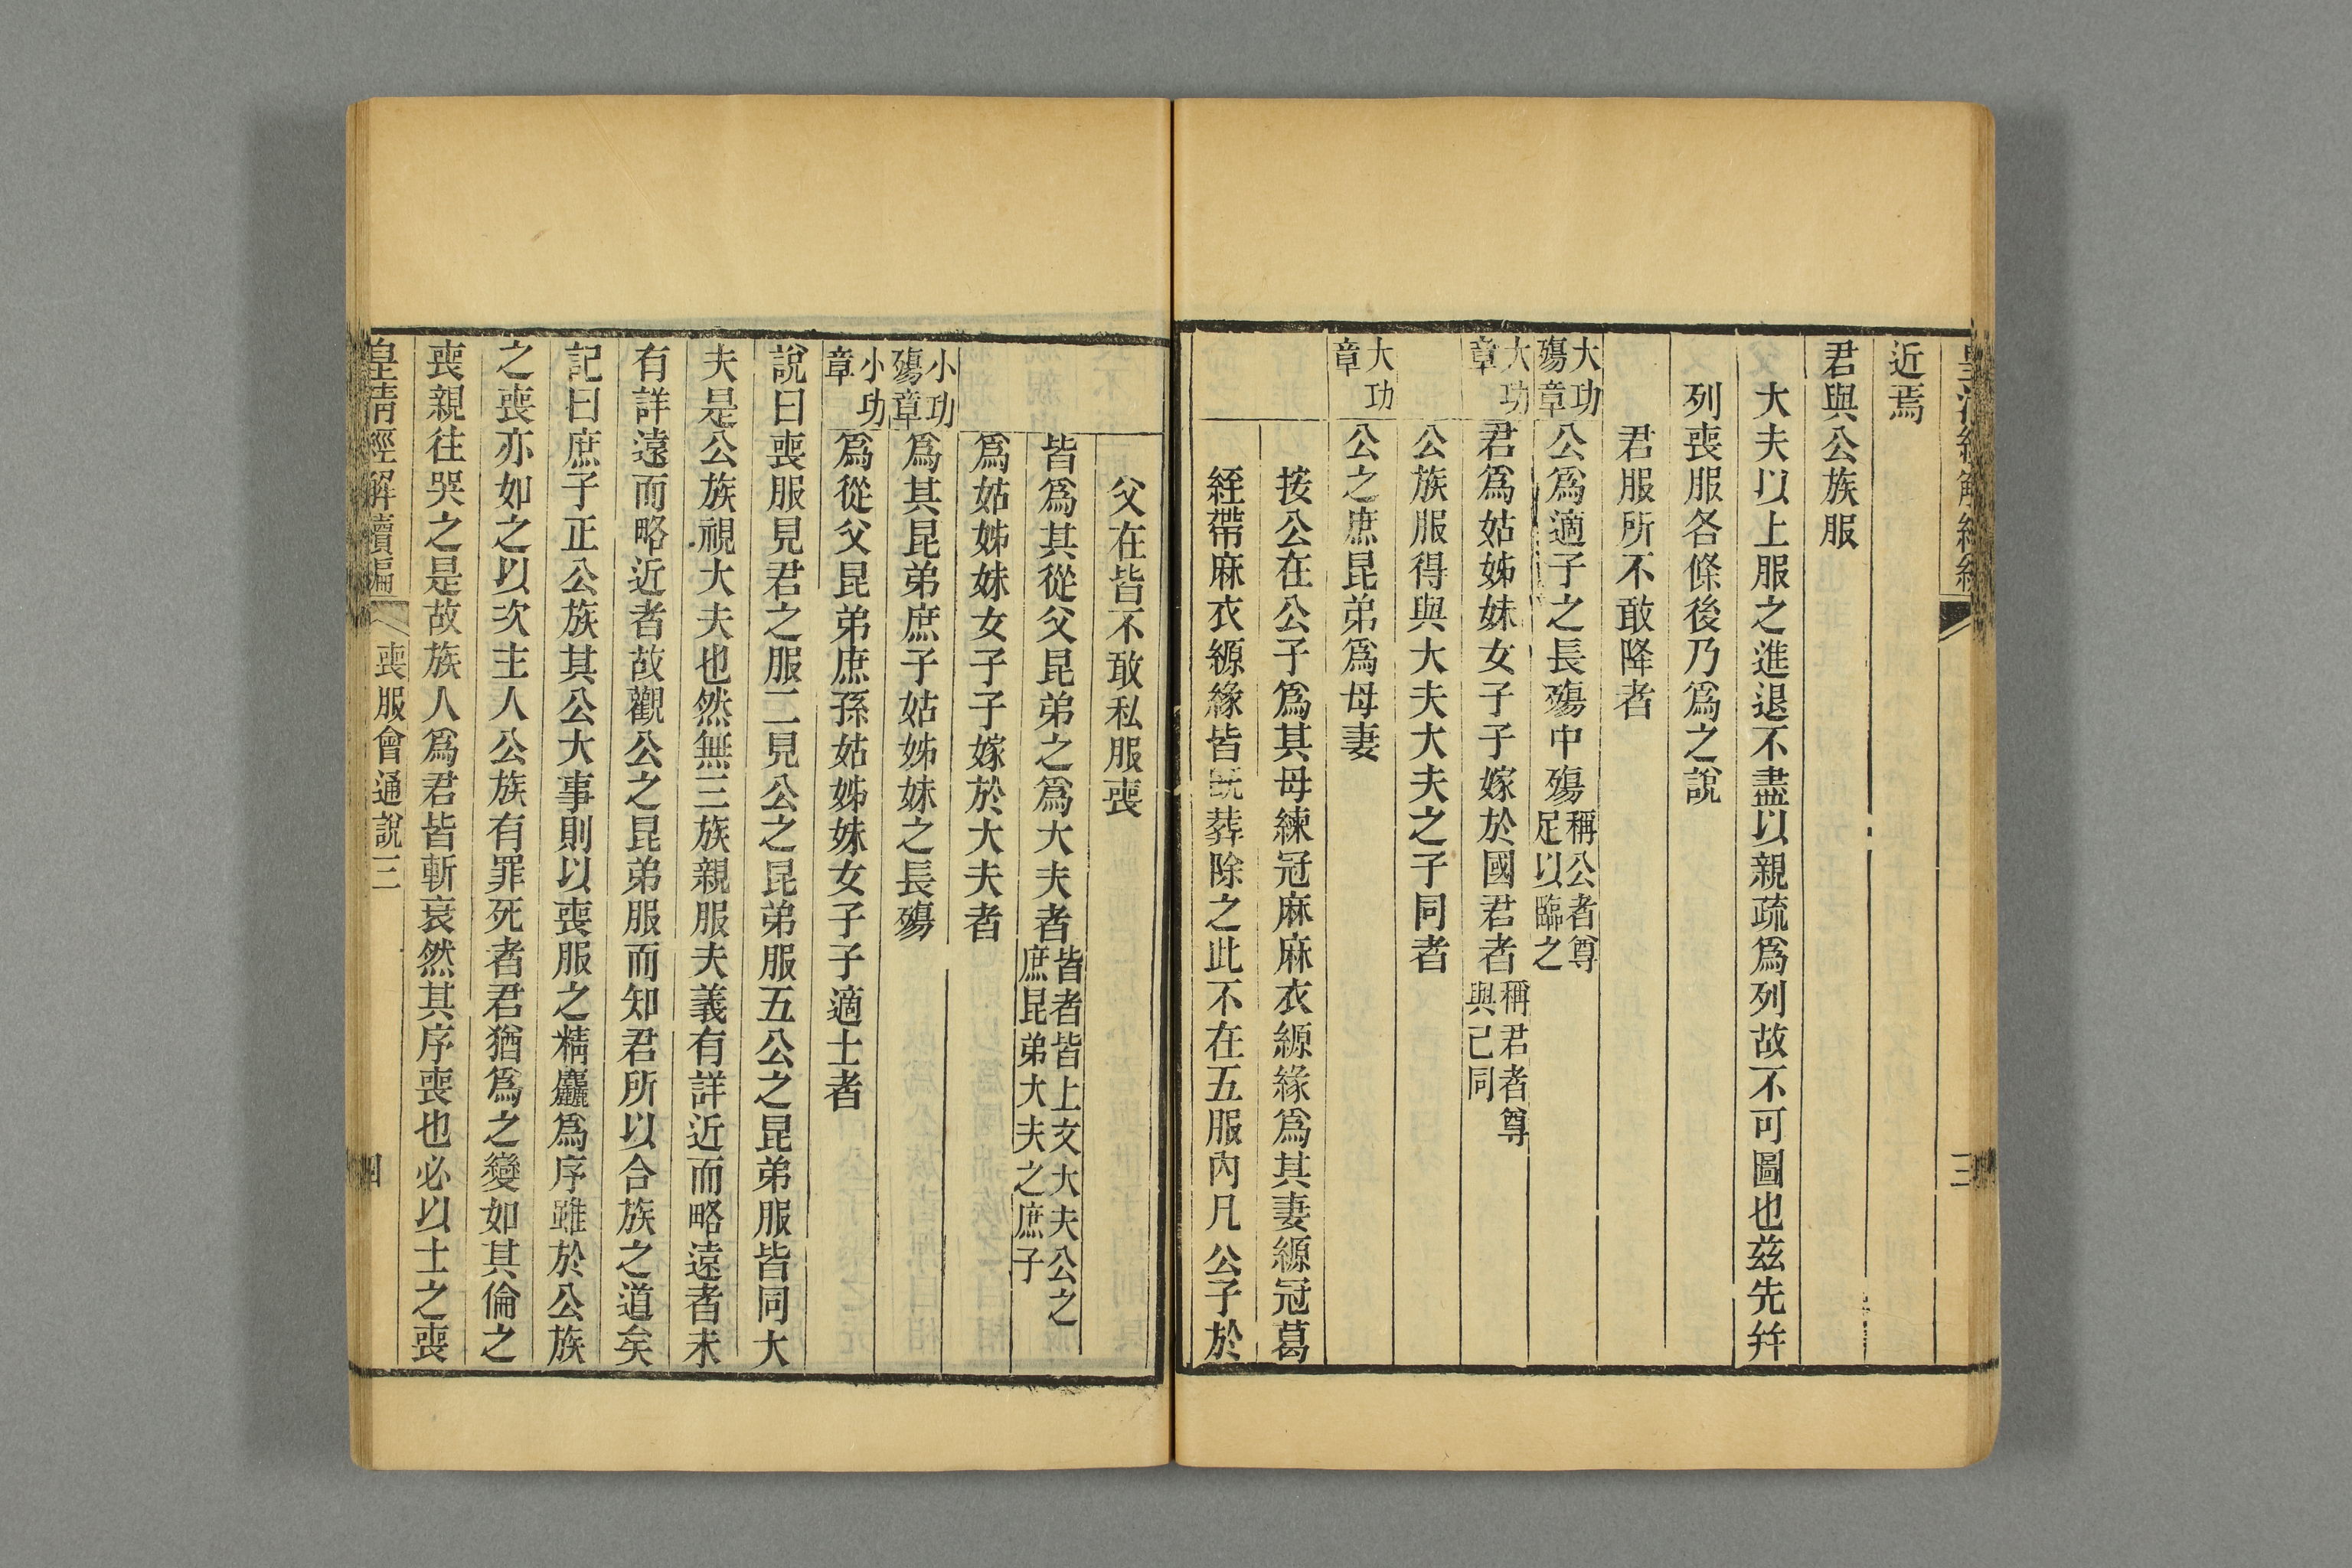 近焉
君與公族服
大夫以上服之進退不盡以親疏爲列故不可圖也茲先幷
列喪服各條後乃爲之說
君服所不敢降者
大功殤章 公爲適子之長殤中殤稱公者尊足以臨之
大功章 君爲姑姊妹女子子嫁於國君者稱君者尊與己同
公族服得與大夫大夫之子同者
大功章 公之庶昆弟爲母妻
按公在公子爲其母練冠麻麻衣縓緣爲其妻縓冠葛
絰帶麻衣縓緣皆旣葬除之此不在五服內凡公子於
三
父在皆不敢私服喪
皆爲其從父昆弟之爲大夫者皆者皆上文大夫公之庶昆弟大夫之庶子
爲姑姊妹女子子嫁於大夫者
小功殤章 爲其昆弟庶子姑姊妹之長殤
小功章 爲從父昆弟庶孫姑姊妹女子子適士者
說曰喪服見君之服二見公之昆弟服五公之昆弟服皆同大
夫是公族視大夫也然無三族親服夫義有詳近而略遠者未
有詳遠而略近者故觀公之昆弟服而知君所以合族之道矣
記曰庶子正公族其公大事則以喪服之精麤爲序雖於公族
之喪亦如之以次主人公族有罪死者君猶爲之變如其倫之
喪親往哭之是故族人爲君皆斬衰然其序喪也必以士之喪
皇淸經解續編 喪服會通說三 四